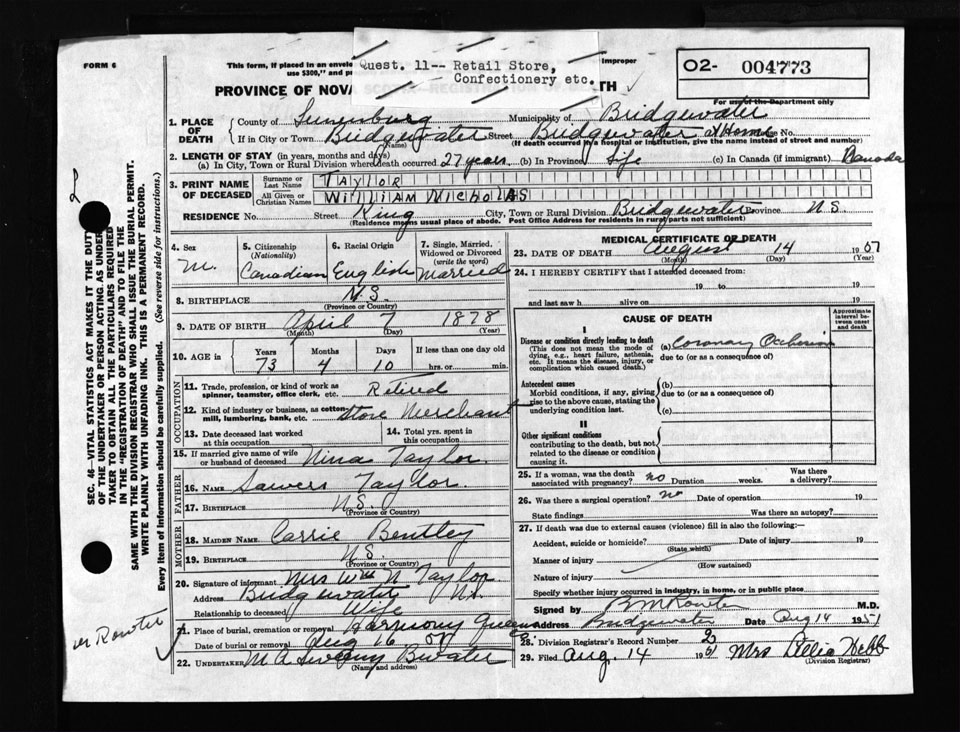 FORM 6
This form, if placed in an envelope
use $300," and p
Quest. 11-- Retail Store,
Confectionery etc.
Improper
02- 004773
PROVINCE OF NOVA SCOTIA—REGISTRATION OF DEATH
For use of the Department only
1. PLACE OF DEATH
County of Lunenburg Municipality of Bridgewater
If in City or Town Bridgewater Street Bridgewater at Home No.
(Name) (If death occurred in a hospital or institution, give the name instead of street and number)
2. LENGTH OF STAY (in years, months and days)
(a) In City, Town or Rural Division where death occurred 27 years (b) in Province Life (c) In Canada (if immigrant) Canada
3. PRINT NAME OF DECEASED
Surname or Last Name TAYLOR
All Given or Christian Names WILLIAM NICHOLAS
RESIDENCE No. Street King City, Town or Rural Division Bridgewater Province N.S.
(Residence means usual place of abode. Post Office Address for residents in rural parts not sufficient)
4. Sex M.
5. Citizenship (Nationality) Canadian
6. Racial Origin English
7. Single, Married, Widowed or Divorced (write the word) Married
8. BIRTHPLACE N.S.
(Province or Country)
9. DATE OF BIRTH April 7 1878
(Month) (Day) (Year)
10. AGE in Years Months Days If less than one day old
73 4 10 hrs. or min.
OCCUPATION
11. Trade, profession, or kind of work as spinner, teamster, office clerk, etc. Retired
12. Kind of industry or business, as cotton-mill, lumbering, bank, etc. Store Merchant
13. Date deceased last worked at this occupation
14. Total yrs. spent in this occupation
15. If married give name of wife or husband of deceased Nina Taylor
FATHER
16. NAME Taylor
17. BIRTHPLACE N.S.
(Province or Country)
MOTHER
18. MAIDEN NAME Carrie Bentley
19. BIRTHPLACE N.S.
(Province or Country)
20. Signature of informant Mrs Wm N Taylor
Address Bridgewater N.S.
Relationship to deceased Wife
21. Place of burial, cremation or removal Harmony Queens
Date of burial or removal Aug 16
22. UNDERTAKER
(Name and address)
MEDICAL CERTIFICATE OF DEATH
23. DATE OF DEATH August 14
(Month) (Day) (Year)
24. I HEREBY CERTIFY that I attended deceased from:
19 to 19
and last saw h alive on 19
CAUSE OF DEATH
Approximate interval between onset and death
I
Disease or condition directly leading to death
(This does not mean the mode of dying, e.g., heart failure, asthenia, etc. It means the disease, injury, or complication which caused death.
(a) Coronary Occlusion
due to (or as a consequence of)
Antecedent causes
Morbid conditions, if any, giving rise to the above cause, stating the underlying condition last.
(b)
due to (or as a consequence of)
(c)
II
Other significant conditions
contributing to the death, but not related to the disease or condition causing it.
25. If a woman, was the death associated with pregnancy? no Duration weeks. Was there a delivery?
26. Was there a surgical operation? no Date of operation 19
State findings Was there an autopsy?
27. If death was due to external causes (violence) fill in also the following:—
Accident, suicide or homicide? Date of injury 19
(State which)
Manner of injury
(How sustained)
Nature of injury
Specify whether injury occurred in industry, in home, or in public place
Signed by M.D.
Address Bridgewater Date Aug 14 1951
28. Division Registrar's Record Number
29. Filed Aug. 14 19 Mrs Webb
(Division Registrar)
SEC. 46—VITAL STATISTICS ACT MAKES IT THE DUTY
OF THE UNDERTAKER OR PERSON ACTING AS UNDERTAKER TO OBTAIN ALL THE PARTICULARS REQUIRED
IN THE "REGISTRATION OF DEATH" AND TO FILE THE
SAME WITH THE DIVISION REGISTRAR WHO SHALL ISSUE THE BURIAL PERMIT.
WRITE PLAINLY WITH UNFADING INK. THIS IS A PERMANENT RECORD.
Every item of Information should be carefully supplied. (See reverse side for instructions.)